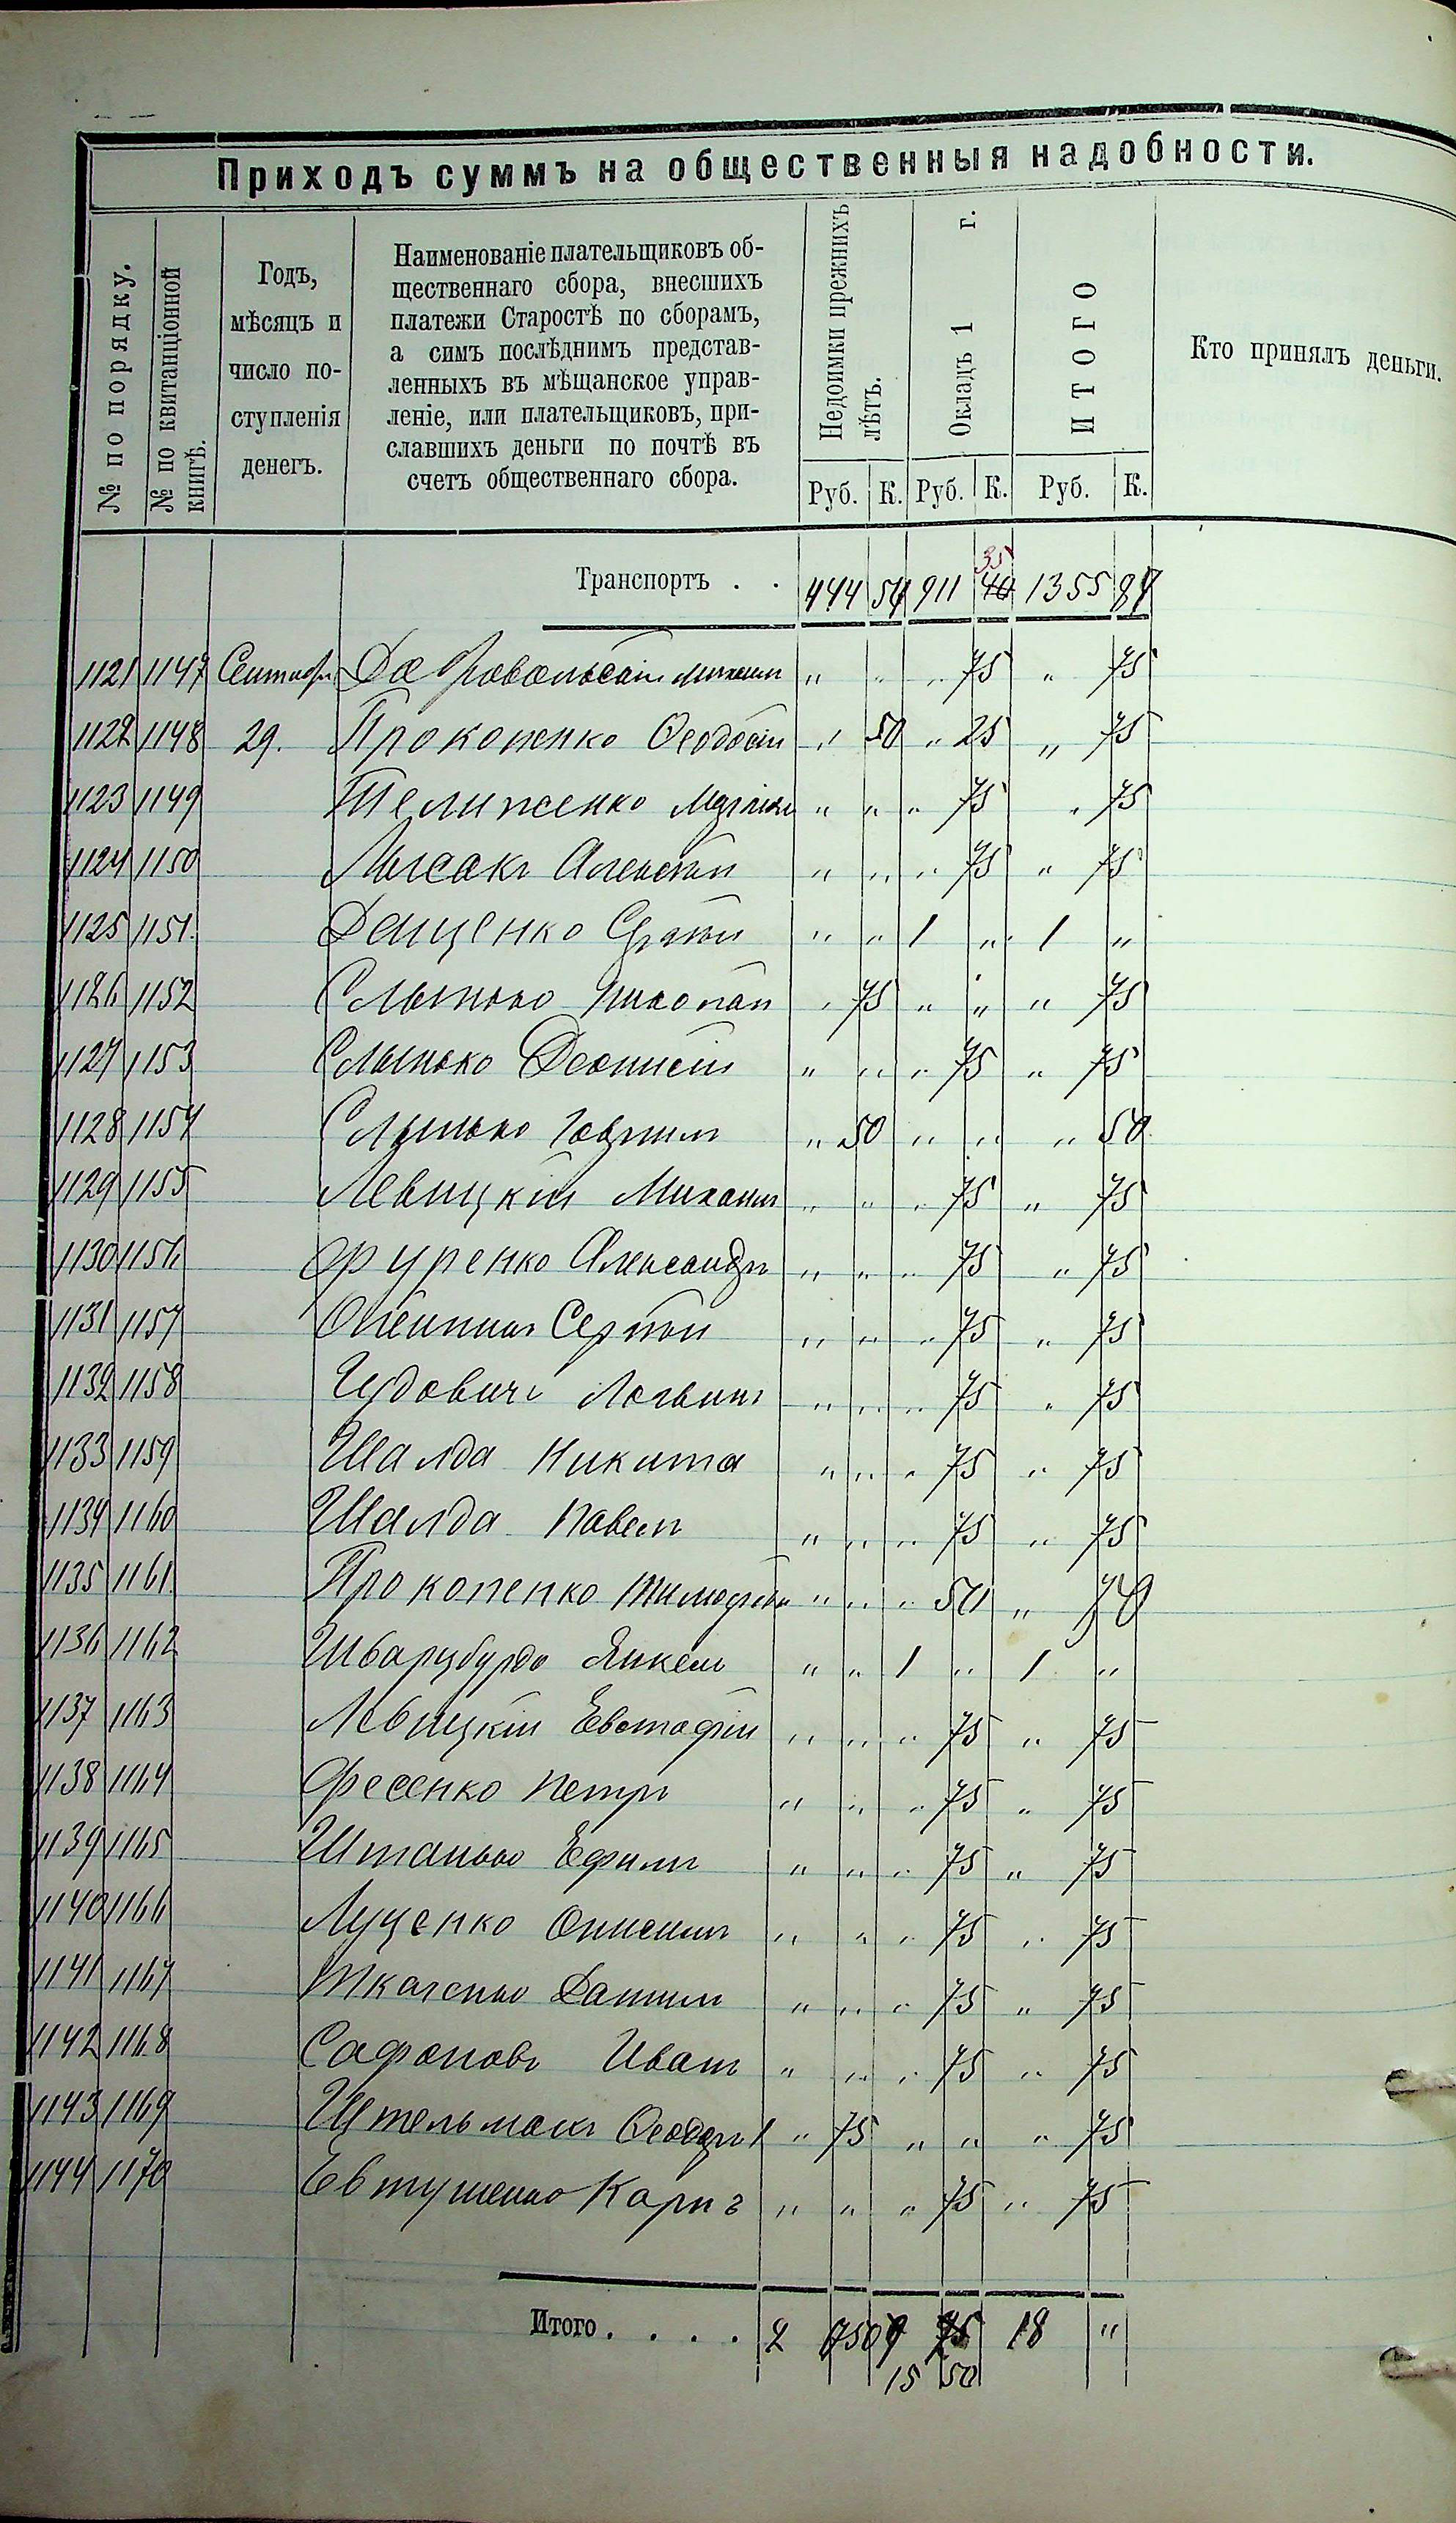 Приходъ суммъ на общественныя надобности.
№ по порядку.
№ по квитанціонной книгѣ.
Годъ, мѣсяцъ и число поступленія денегъ.
Наименованіе плательщиковъ об-
щественнаго сбора, внесшихъ
платежи Старостѣ по сборамъ,
а симъ послѣднимъ представ-
ленныхъ въ мѣщанское управ-
леніе, или плательщиковъ, при-
славшихъ деньги по почтѣ въ
счетъ общественнаго сбора.
Недоимки прежнихъ лѣтъ.
Окладъ 1 г.
ИТОГО
Кто принялъ деньги.
Руб. К. Руб. К. Руб. К.
Транспортъ . . 444 54 911 40 35 1355 89
1121 1147 Сентября Добровольскій Михаилъ " " " 75 " 75
1122 1148 29. Прокопенко Ѳеодосій " 50 " 25 " 75
1123 1149 Телиженко " " " 75 " 75
1124 1150 Лысакъ Алексѣй " " " 75 " 75
1125 1151. Даценко Сергѣй " " 1 " 1 "
1126 1152 Слынько Николай " 75 " " " 75
1127 1153 Слынько Діонисій " " " 75 " 75
1128 1154 Слынько Гавріилъ " 50 " " " 50
1129 1155 Левицкій Михаилъ " " " 75 " 75
1130 1156 Фуренко Александръ " " " 75 " 75
1131 1157 Сергѣй " " " 75 " 75
1132 1158 Чудовичъ Логвинъ " " " 75 " 75
1133 1159 Шалда Никита " " " 75 " 75
1134 1160 Шалда Павелъ " " " 75 " 75
1135 1161. Прокопенко Тимофей " " " 50 " 50
1136 1162 Шварцбурдъ Янкель " " 1 " 1 "
1137 1163 Левицкій Евстафій " " " 75 " 75
1138 1164 Фесенко Петръ " " " 75 " 75
1139 1165 Штанько Ефимъ " " " 75 " 75
1140 1166 Луценко Онисимъ " " " 75 " 75
1141 1167 Ткаченко Даниилъ " " " 75 " 75
1142 1168 Сафоновъ Иванъ " " " 75 " 75
1143 1169 Штельмахъ Ѳеодоръ 1 " 75 " " " 75
1144 1170 Евтушенко Карпъ " " " 75 " 75
Итого. . . . 2 50 18 "
15 50